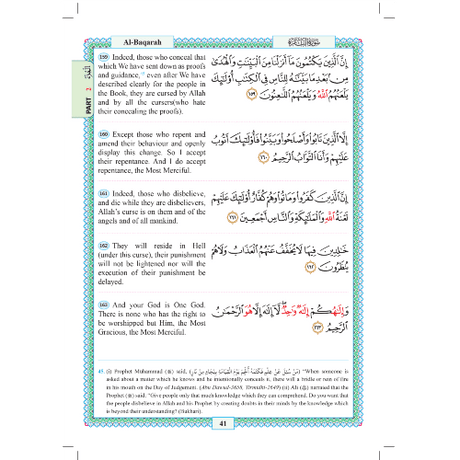 Al-Baqarah
سورة البقرة
PART 2
159 Indeed, those who conceal that
which We have sent down as proofs
and guidance, even after We have
described clearly for the people in
the Book, they are cursed by Allah
and by all the cursers(who hate
their concealing the proofs).
إِنَّ الَّذِينَ يَكْتُمُونَ مَا أَنزَلْنَا مِنَ الْبَيِّنَاتِ وَالْهُدَىٰ
مِن بَعْدِ مَا بَيَّنَّاهُ لِلنَّاسِ فِي الْكِتَابِ أُولَٰئِكَ
يَلْعَنُهُمُ اللَّهُ وَيَلْعَنُهُمُ اللَّاعِنُونَ ١٥٩
160 Except those who repent and
amend their behaviour and openly
display this change. So I accept
their repentance. And I do accept
repentance, the Most Merciful.
إِلَّا الَّذِينَ تَابُوا وَأَصْلَحُوا وَبَيَّنُوا فَأُولَٰئِكَ أَتُوبُ
عَلَيْهِمْ وَأَنَا التَّوَّابُ الرَّحِيمُ ١٦٠
161 Indeed, those who disbelieve,
and die while they are disbelievers,
Allah's curse is on them and of the
angels and of all mankind.
إِنَّ الَّذِينَ كَفَرُوا وَمَاتُوا وَهُمْ كُفَّارٌ أُولَٰئِكَ عَلَيْهِمْ
لَعْنَةُ اللَّهِ وَالْمَلَائِكَةِ وَالنَّاسِ أَجْمَعِينَ ١٦١
162 They will reside in Hell
(under this curse), their punishment
will not be lightened nor will the
execution of their punishment be
delayed.
خَالِدِينَ فِيهَا لَا يُخَفَّفُ عَنْهُمُ الْعَذَابُ وَلَا هُمْ
يُنظَرُونَ ١٦٢
163 And your God is One God.
There is none who has the right to
be worshipped but Him, the Most
Gracious, the Most Merciful.
وَإِلَٰهُكُمْ إِلَٰهٌ وَاحِدٌ لَّا إِلَٰهَ إِلَّا هُوَ الرَّحْمَٰنُ
الرَّحِيمُ ١٦٣
47. (i) Prophet Muhammad (ﷺ) said, "When someone is
asked about a matter which he knows and he intentionally conceals it, there will a bridle or rein of fire
in his mouth on the Day of Judgement. (Abu Dawud-3658, Tirmidhi-2649) (ii) Ali (رضي الله عنه) narrated that the
Prophet (ﷺ) said, "Give people only that much knowledge which they can comprehend. Do you want that
the people disbelieve in Allah and his Prophet by creating doubts in their minds by the knowledge which
is beyond their understanding? (Bukhari).
41